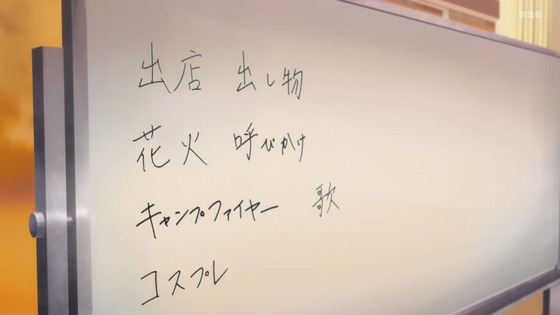 出店 出し物
花火 呼びかけ
キャンプファイヤー 歌
コスプレ